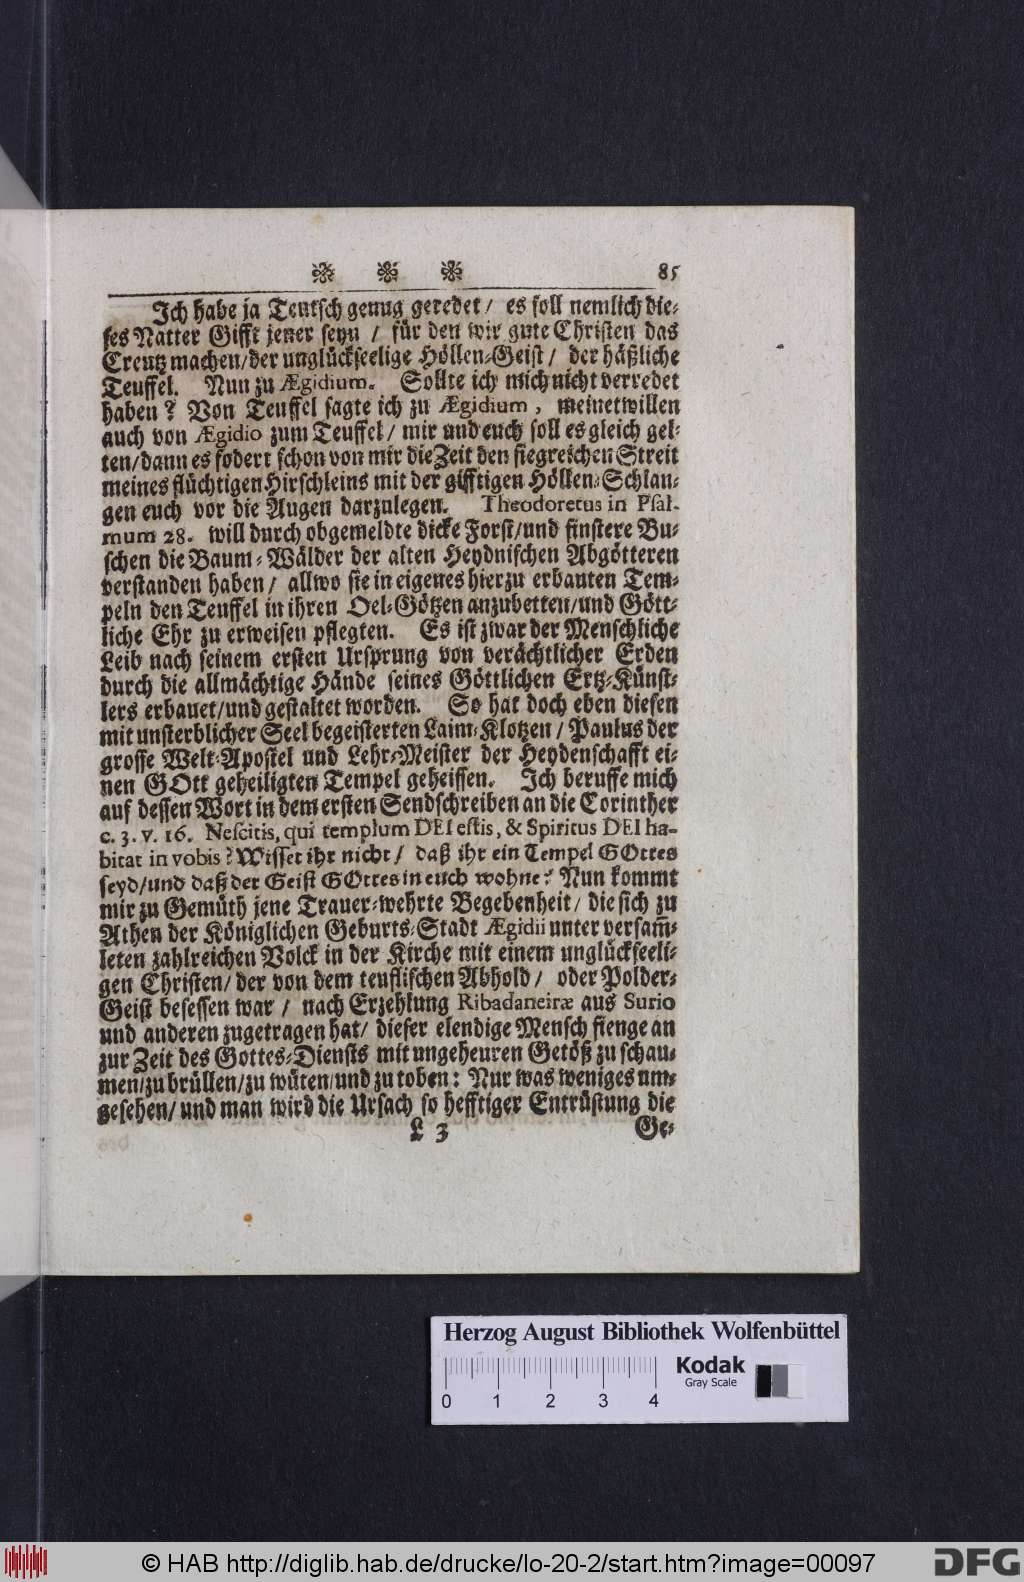 ❋ ❋ ❋ 85
Ich habe ja Teutsch genug geredet / es soll nemlich die-
ses Natter Gifft jener seyn / für den wir gute Christen das
Creutz machen/der unglückseelige Höllen-Geist / der häßliche
Teuffel. Nun zu Ægidium. Sollte ich mich nicht verredet
haben? Von Teuffel sagte ich zu Ægidium, meinetwillen
auch von Ægidio zum Teuffel / mir und euch soll es gleich gel-
ten/dann es fodert schon von mir die Zeit den siegreichen Streit
meines flüchtigen Hirschleins mit der gifftigen Höllen-Schlan-
gen euch vor die Augen darzulegen. Theodoretus in Psal-
mum 28. will durch obgemeldte dicke Forst/und finstere Bu-
schen die Baum-Wälder der alten Heydnischen Abgötteren
verstanden haben / allwo sie in eigenes hierzu erbauten Tem-
peln den Teuffel in ihren Oel-Götzen anzubetten/und Gött-
liche Ehr zu erweisen pflegten. Es ist zwar der Menschliche
Leib nach seinem ersten Ursprung von verächtlicher Erden
durch die allmächtige Hände seines Göttlichen Ertz-Künst-
lers erbauet/und gestaltet worden. So hat doch eben diesen
mit unsterblicher Seel begeisterten Laim-Klotzen / Paulus der
grosse Welt-Apostel und Lehr-Meister der Heydenschafft ei-
nen GOtt geheiligten Tempel geheissen. Ich beruffe mich
auf dessen Wort in dem ersten Sendschreiben an die Corinther
c. 3. v. 16. Nescitis, qui templum DEI estis, & Spiritus DEI ha-
bitat in vobis? Wisset ihr nicht / daß ihr ein Tempel GOttes
seyd/und daß der Geist GOttes in euch wohne? Nun kommt
mir zu Gemüth jene Trauer-wehrte Begebenheit / die sich zu
Athen der Königlichen Geburts-Stadt Ægidii unter versam̄-
leten zahlreichen Volck in der Kirche mit einem unglückseeli-
gen Christen/ der von dem teuflischen Abhold / oder Polder-
Geist besessen war / nach Erzehlung Ribadaneiræ aus Surio
und anderen zugetragen hat/ dieser elendige Mensch fienge an
zur Zeit des Gottes-Diensts mit ungeheuren Getöß zu schau-
men/zu brüllen/zu wüten/und zu toben: Nur was weniges um-
gesehen/ und man wird die Ursach so hefftiger Entrüstung die
L 3 Ge-
Herzog August Bibliothek Wolfenbüttel
Kodak
Gray Scale
0 1 2 3 4
© HAB http://diglib.hab.de/drucke/lo-20-2/start.htm?image=00097
DFG